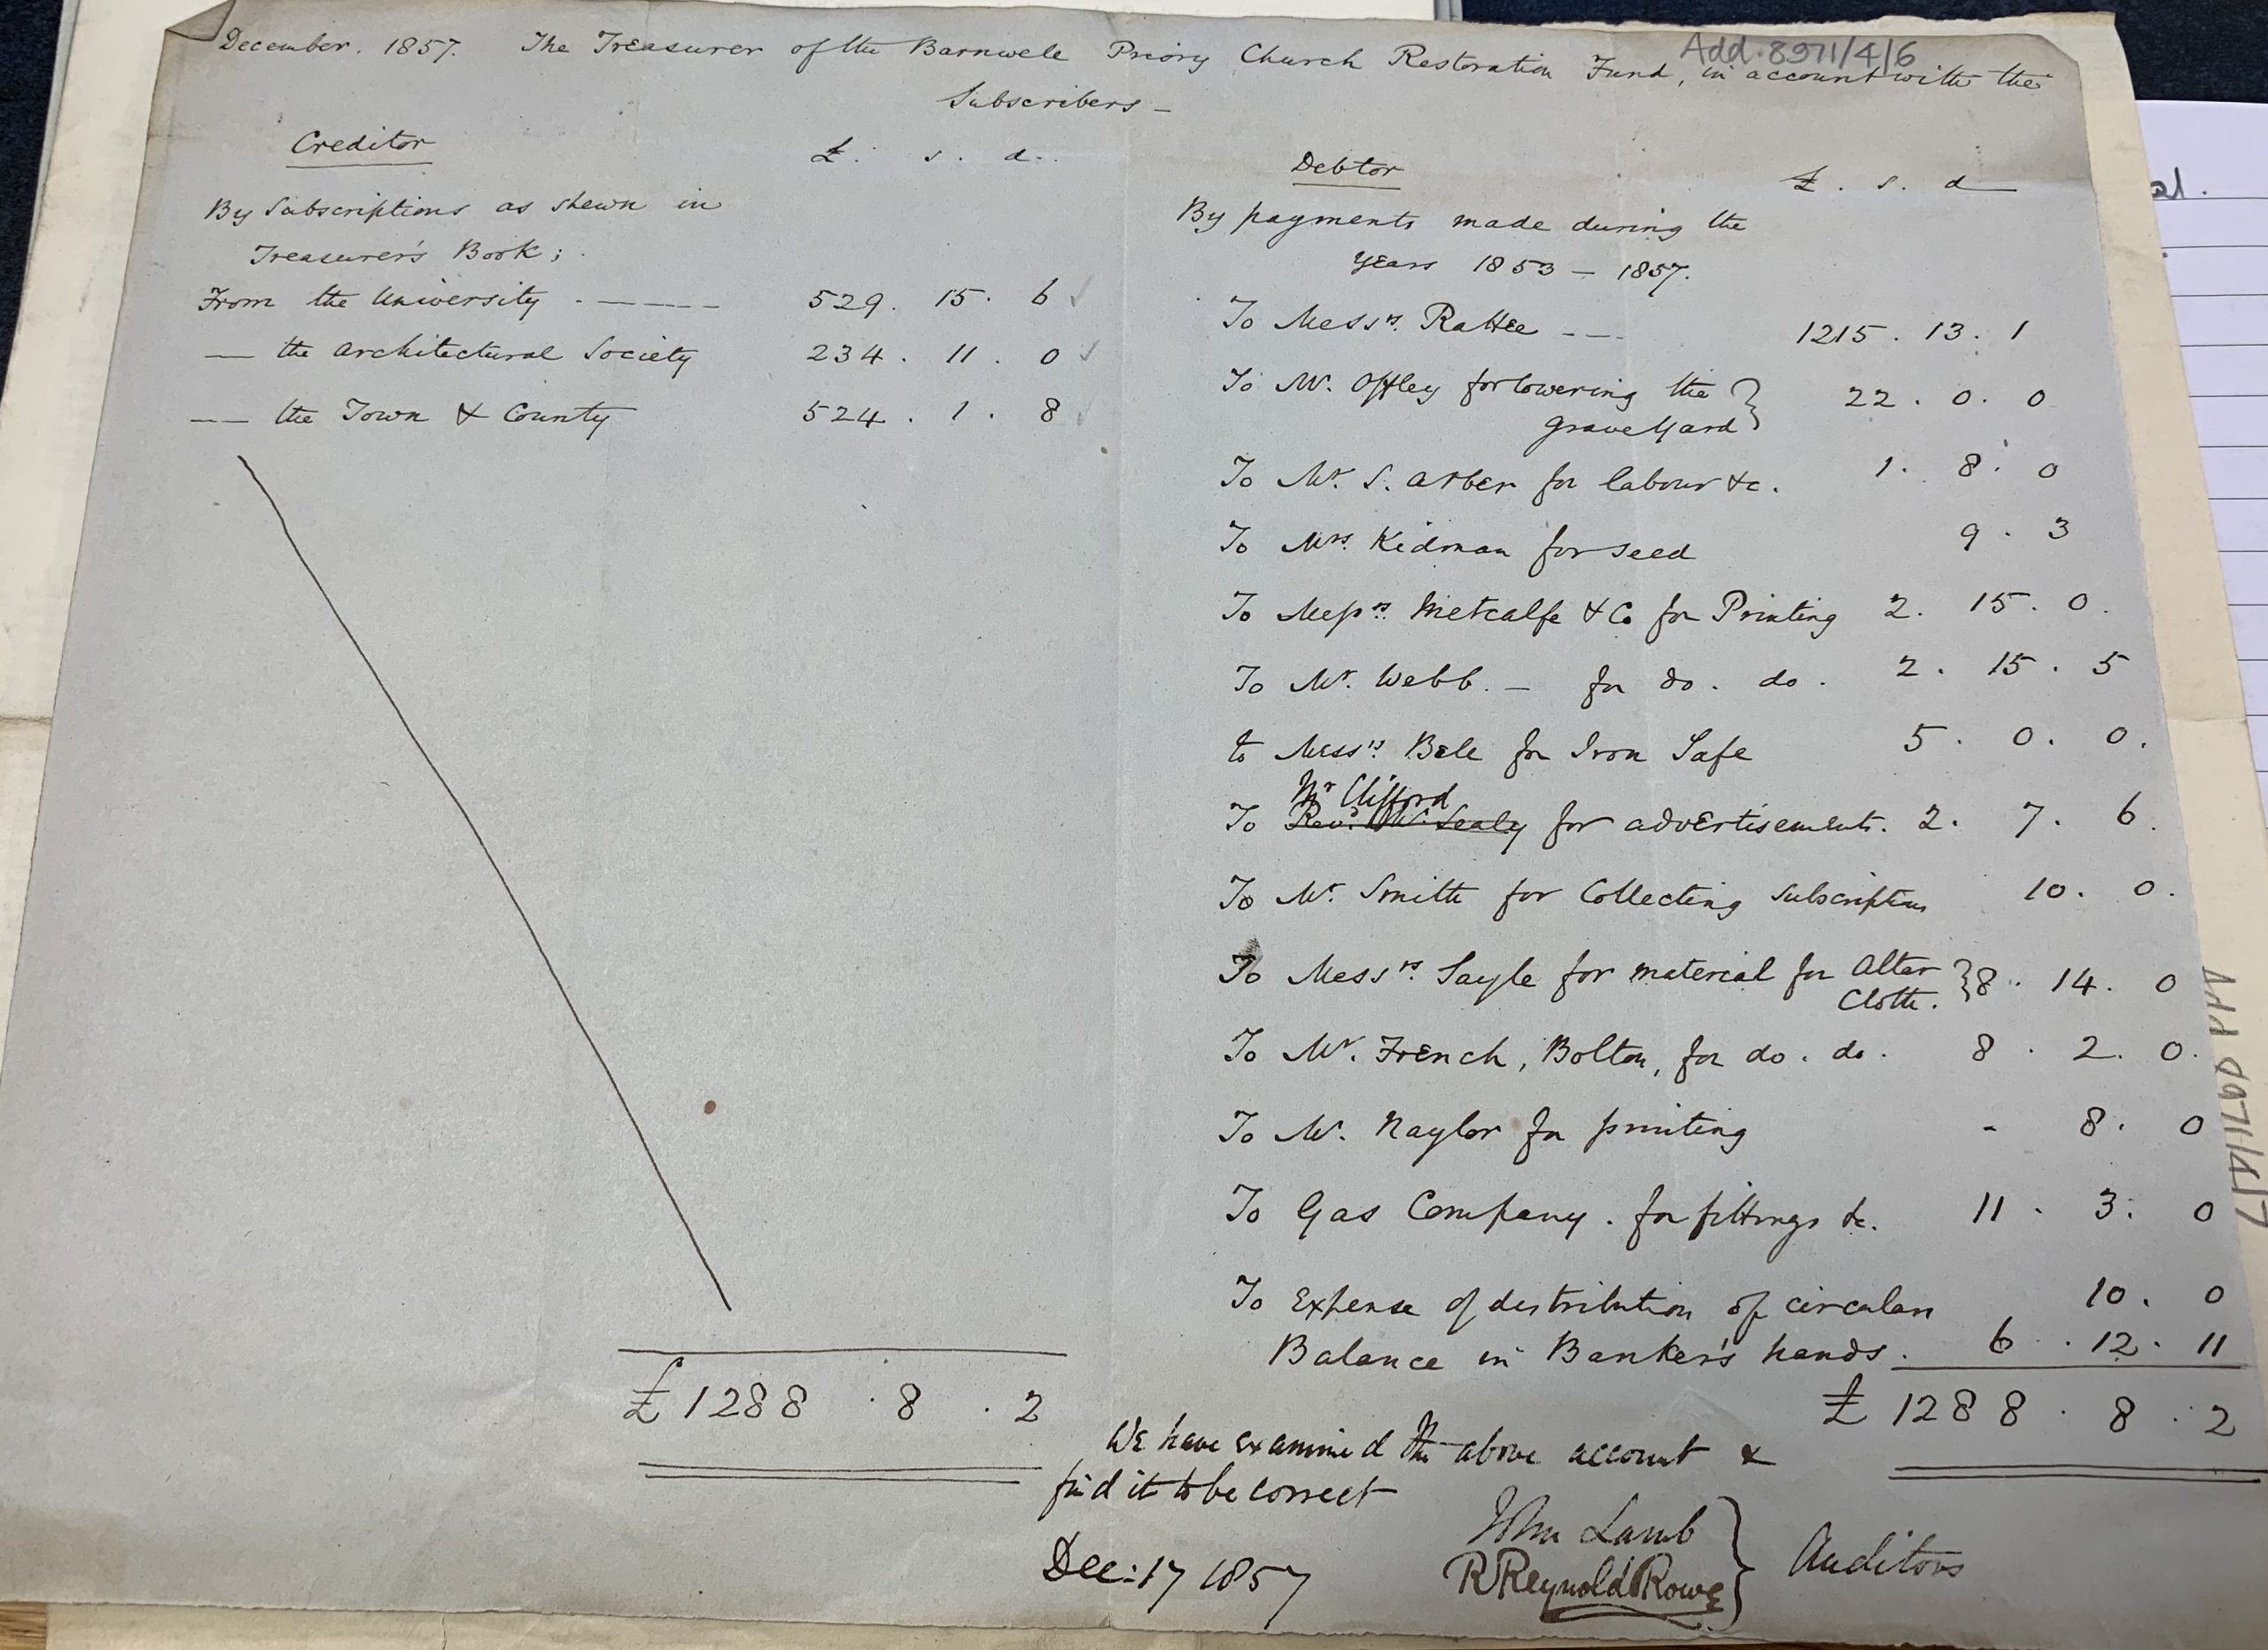 December. 1857. The Treasurer of the Barnwell Priory Church Restoration Fund, in account with the
Add. 8971/4/6
Subscribers —
Creditor £. s. d.
By Subscriptions as shewn in
Treasurer's Book;
From the University - — — — 529. 15. 6 ✓
— the Architectural Society 234. 11. 0 ✓
—— the Town & County 524. 1. 8 ✓
£ 1288. 8. 2
Debtor £. s. d
By payments made during the
Years 1853 — 1857.
To Messrs. Rattee — — 1215. 13. 1
To Mr. Offley for lowering the } 22. 0. 0
Grave Yard
To Mr. S. Arber for labour &c. 1. 8. 0
To Mrs. Kidman for seed 9. 3
To Messrs. Metcalfe & Co for Printing 2. 15. 0.
To Mr. Webb. — for do. do. 2. 15. 5
to Messrs. Bell for Iron Safe 5. 0. 0.
Mr Clifford
To Revd. Mr. Sealy for advertisements. 2. 7. 6.
To Mr. Smith for Collecting Subscriptions 10. 0.
To Messrs. Sayle for material for Altar } 8. 14. 0
Cloth.
To Mr. French, Bolton, for do. do. 8. 2. 0.
To Mr. Naylor for printing - 8. 0
To Gas Company. for fittings &c. 11. 3. 0
To Expense of distribution of circulars 10. 0
Balance in Banker's hands. 6. 12. 11
£ 1288. 8. 2
We have examined the above account &
find it to be correct
Dec: 17 1857
John Lamb
R Reynolds Rowe } Auditors